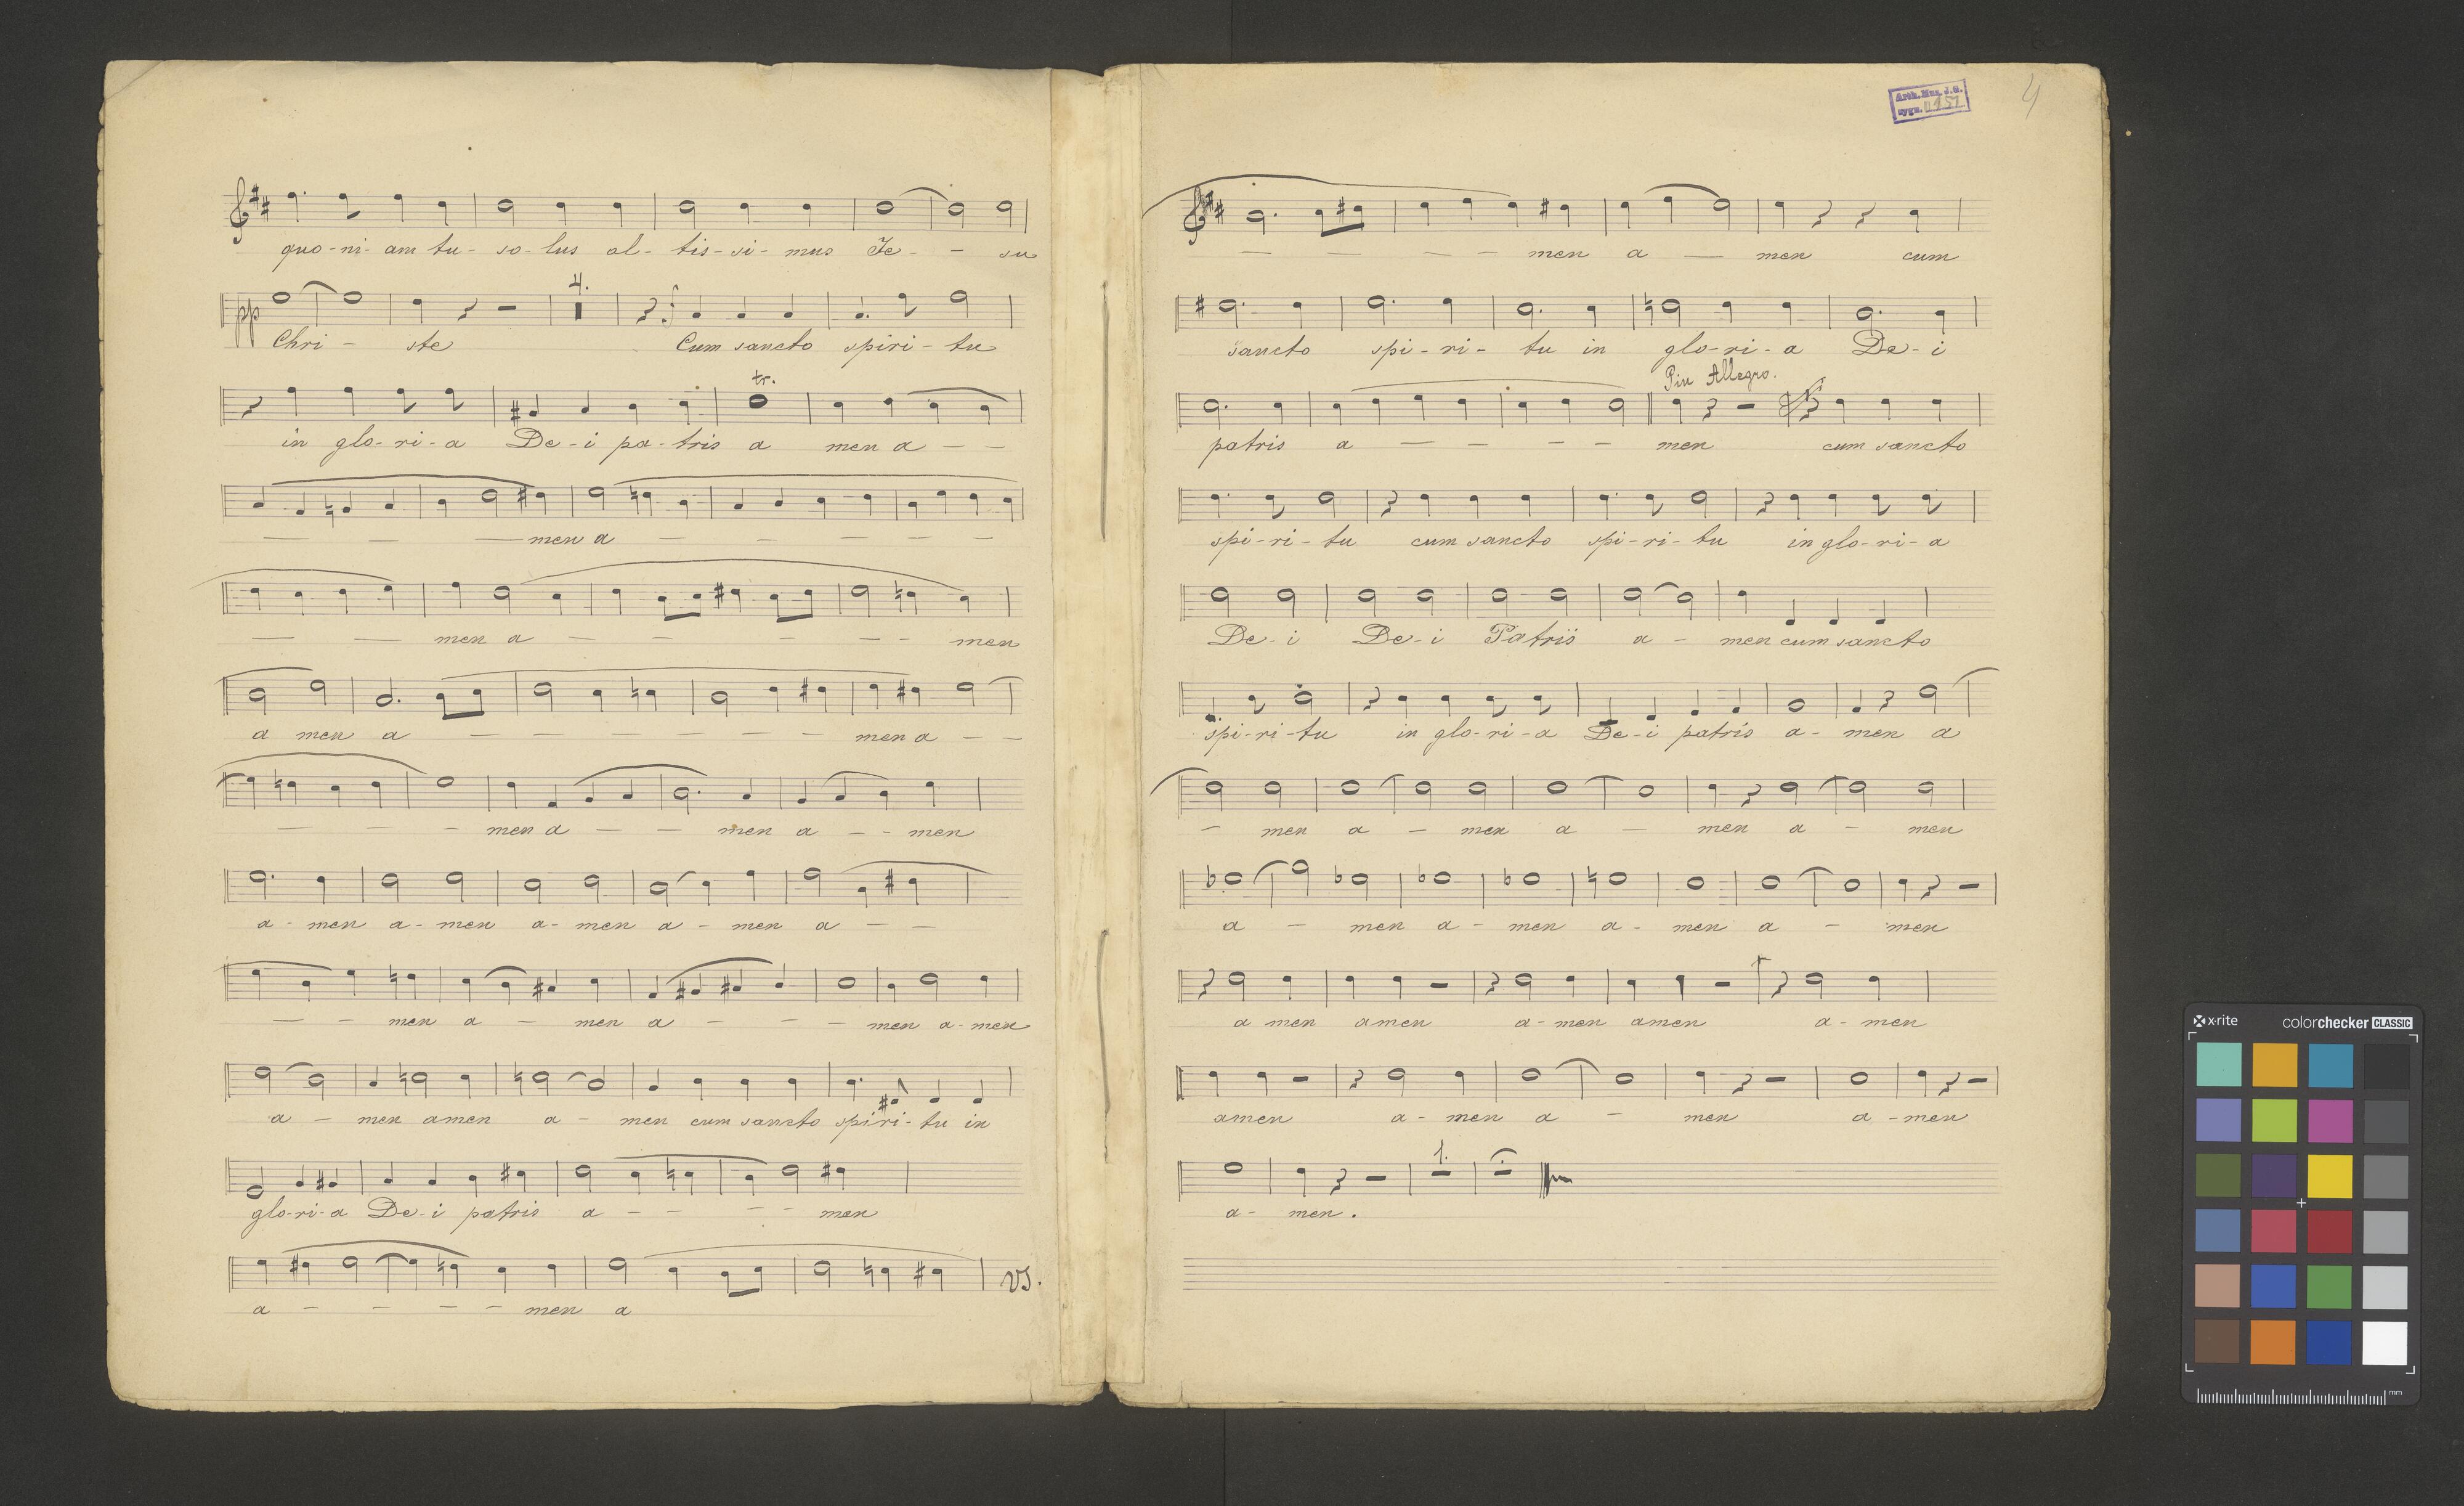 quo-ni-am tu-so-lus al-tis-si-mus Je - - su
pp
4.
Chri - ste Cum sancto spiri-tu
tr.
in glo-ri-a De-i pa-tris a men a - -
- - - men a - - - - -
- - men a - - - - - men
a men a - - - - - men a - -
- - - men a - - men a - - men
a-men a-men a-men a-men a - -
- - men a - men a - - - men a-men
a - men amen a - men cum sancto spiri-tu in
glo-ri-a De-i patris a - - - - men
a - - - - men a
VS.
Arch. Muz. J. G.
sygn. II 151
4
- - - - men a - men cum
sancto spi-ri-tu in glo-ri-a De-i
Piu Allegro.
patris a - - - - men cum sancto
spi-ri-tu cum sancto spi-ri-tu in glo-ri-a
De-i De-i Patris a - men cum sancto
spi-ri-tu in glo-ri-a De-i patris a-men a
- men a - men a - men a - men
a - men a - men a - men a - men
a men amen a-men amen a-men
amen a-men a - men a-men
1.
a-men.
x-rite colorchecker CLASSIC
mm